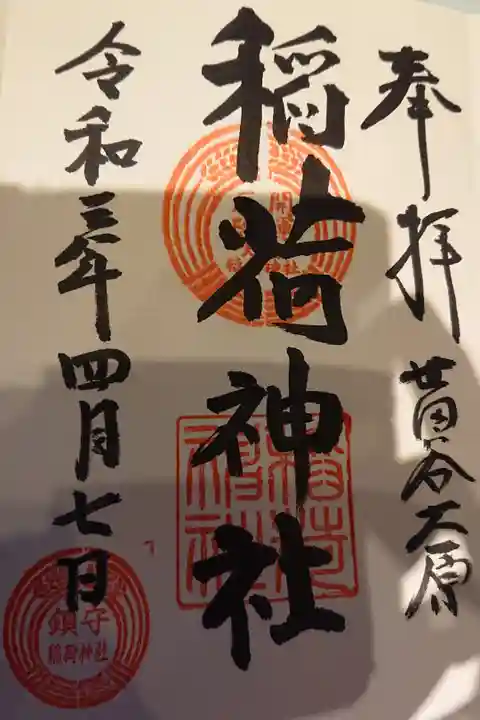 奉拝
黄谷大原
稲荷神社
令和三年四月七日
稲荷神社
鎮守
稲荷神社